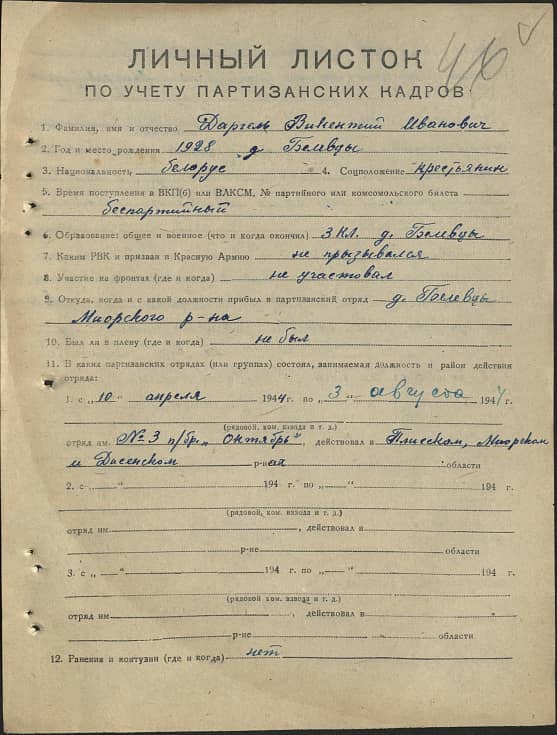 46
ЛИЧНЫЙ ЛИСТОК
ПО УЧЕТУ ПАРТИЗАНСКИХ КАДРОВ
1. Фамилия, имя и отчество Даргель Викентий Иванович
2. Год и место рождения 1928 д. Белевцы
3. Национальность белорус 4. Соцположение крестьянин
5. Время поступления в ВКП(б) или ВЛКСМ, № партийного или комсомольского билета
беспартийный
6. Образование: общее и военное (что и когда окончил) 3 кл. д. Белевцы
7. Каким РВК и призван в Красную Армию не призывался
8. Участие на фронтах (где и когда) не участвовал
9. Откуда, когда и с какой должности прибыл в партизанский отряд д. Белевцы
Миорского р-на
10. Был ли в плену (где и когда) не был
11. В каких партизанских отрядах (или группах) состоял, занимаемая должность и район действия
отряда:
1. с „10" апреля 1944 г. по „3" августа 1944 г.
(рядовой, ком. взвода и т. д.)
отряд им. № 3 п/бр. „Октябрь", действовал в Плисском, Миорском
и Дисенском р-нах области
2. с „ " 194 г. по „ " 194 г.
(рядовой, ком. взвода и т. д.)
отряд им. , действовал в
р-не области
3. с „ " 194 г. по „ " 194 г.
(рядовой, ком. взвода и т. д.)
отряд им. , действовал в
р-не области
12. Ранения и контузии (где и когда) нет